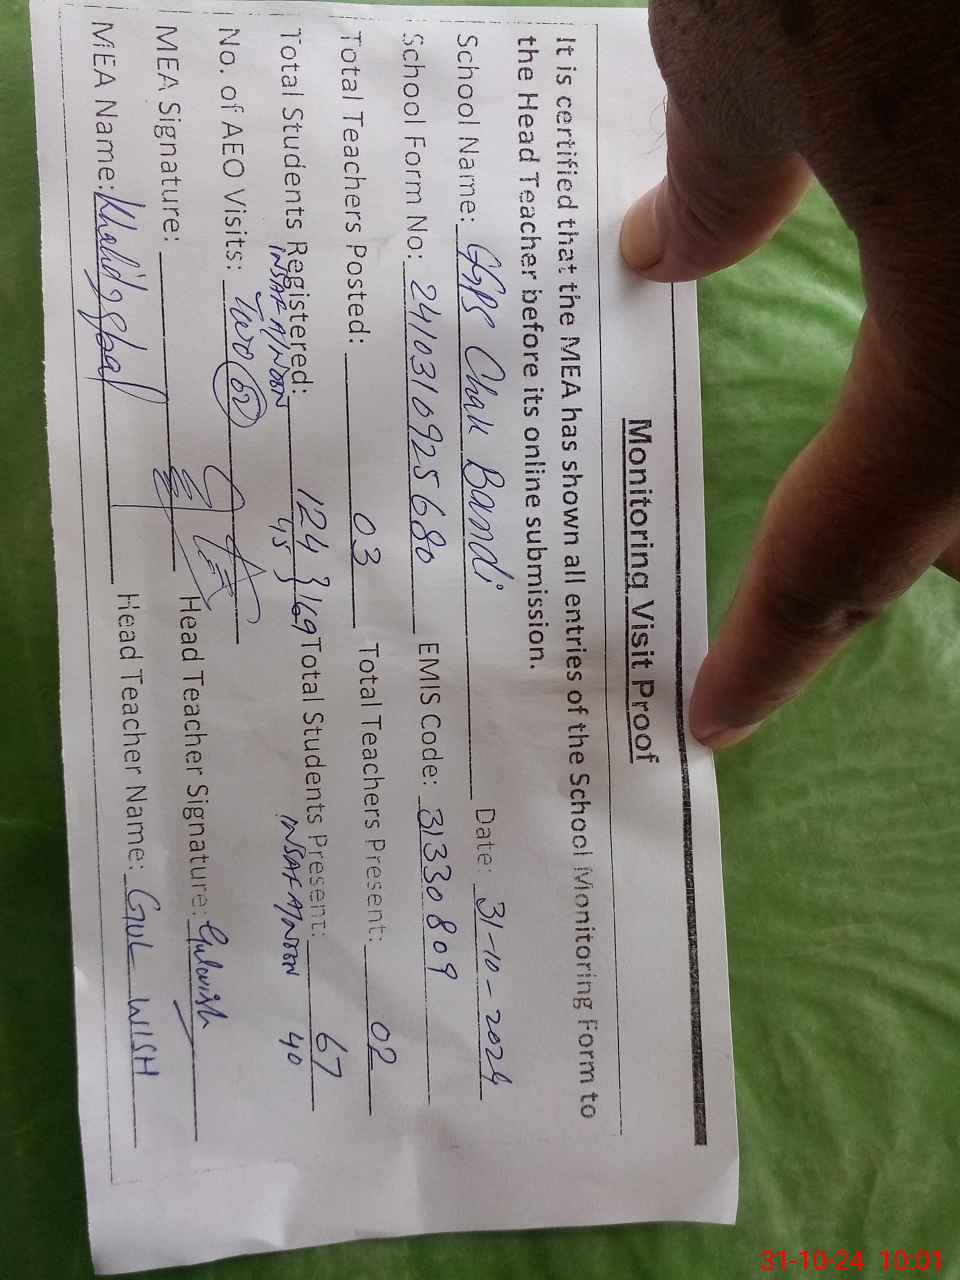 Monitoring Visit Proof
It is certified that the MEA has shown all entries of the School Monitoring Form to
the Head Teacher before its online submission.
School Name: GGPS Chak Bandi Date: 31-10-2024
School Form No: 2410310925680 EMIS Code: 31330809
Total Teachers Posted: 03 Total Teachers Present: 02
Total Students Registered: 124 } 169 Total Students Present: 67
INSAF A/NOON 45 INSAF A/NOON 40
No. of AEO Visits: Two (02)
MEA Signature: Head Teacher Signature: Gulwish
MEA Name: Khalid Iqbal Head Teacher Name: GUL WISH
31-10-24 10:01